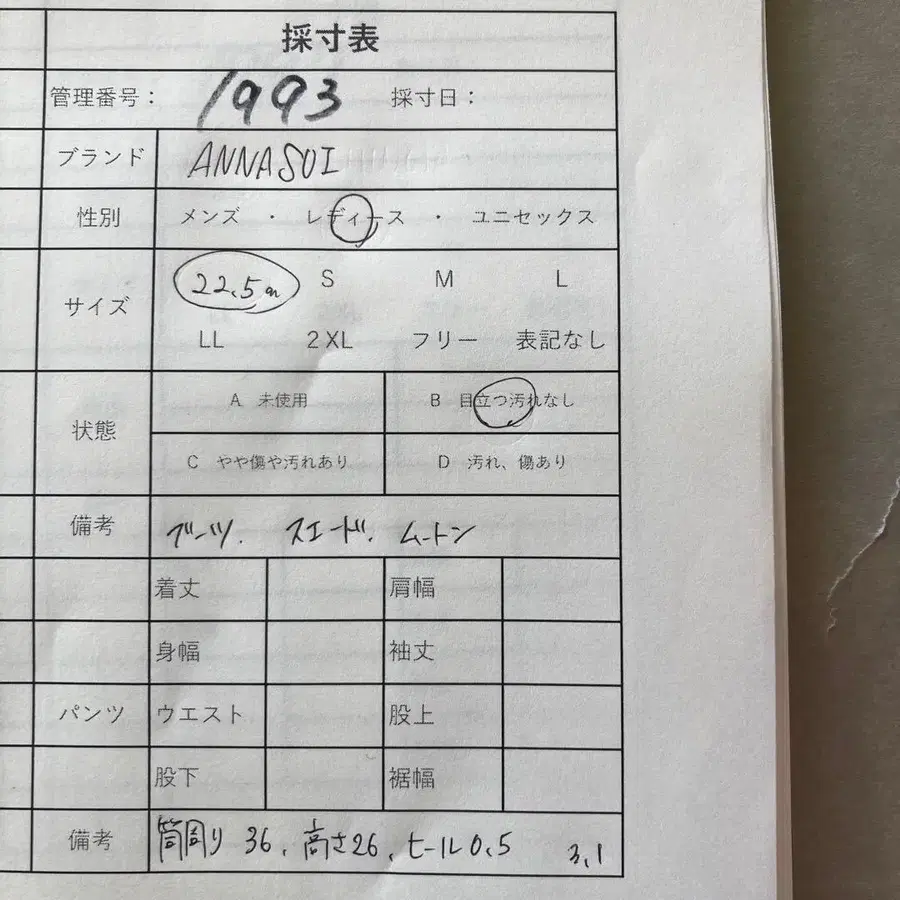 採寸表
管理番号： 1993 採寸日：
ブランド ANNA SUI
性別 メンズ ・ レディース ・ ユニセックス
サイズ 22.5cm S M L
LL 2XL フリー 表記なし
状態 A 未使用 B 目立つ汚れなし
C やや傷や汚れあり D 汚れ、傷あり
備考 ブーツ. スエード. ムートン
着丈 肩幅
身幅 袖丈
パンツ ウエスト 股上
股下 裾幅
備考 筒周り 36、高さ26、ヒール0.5 3.1